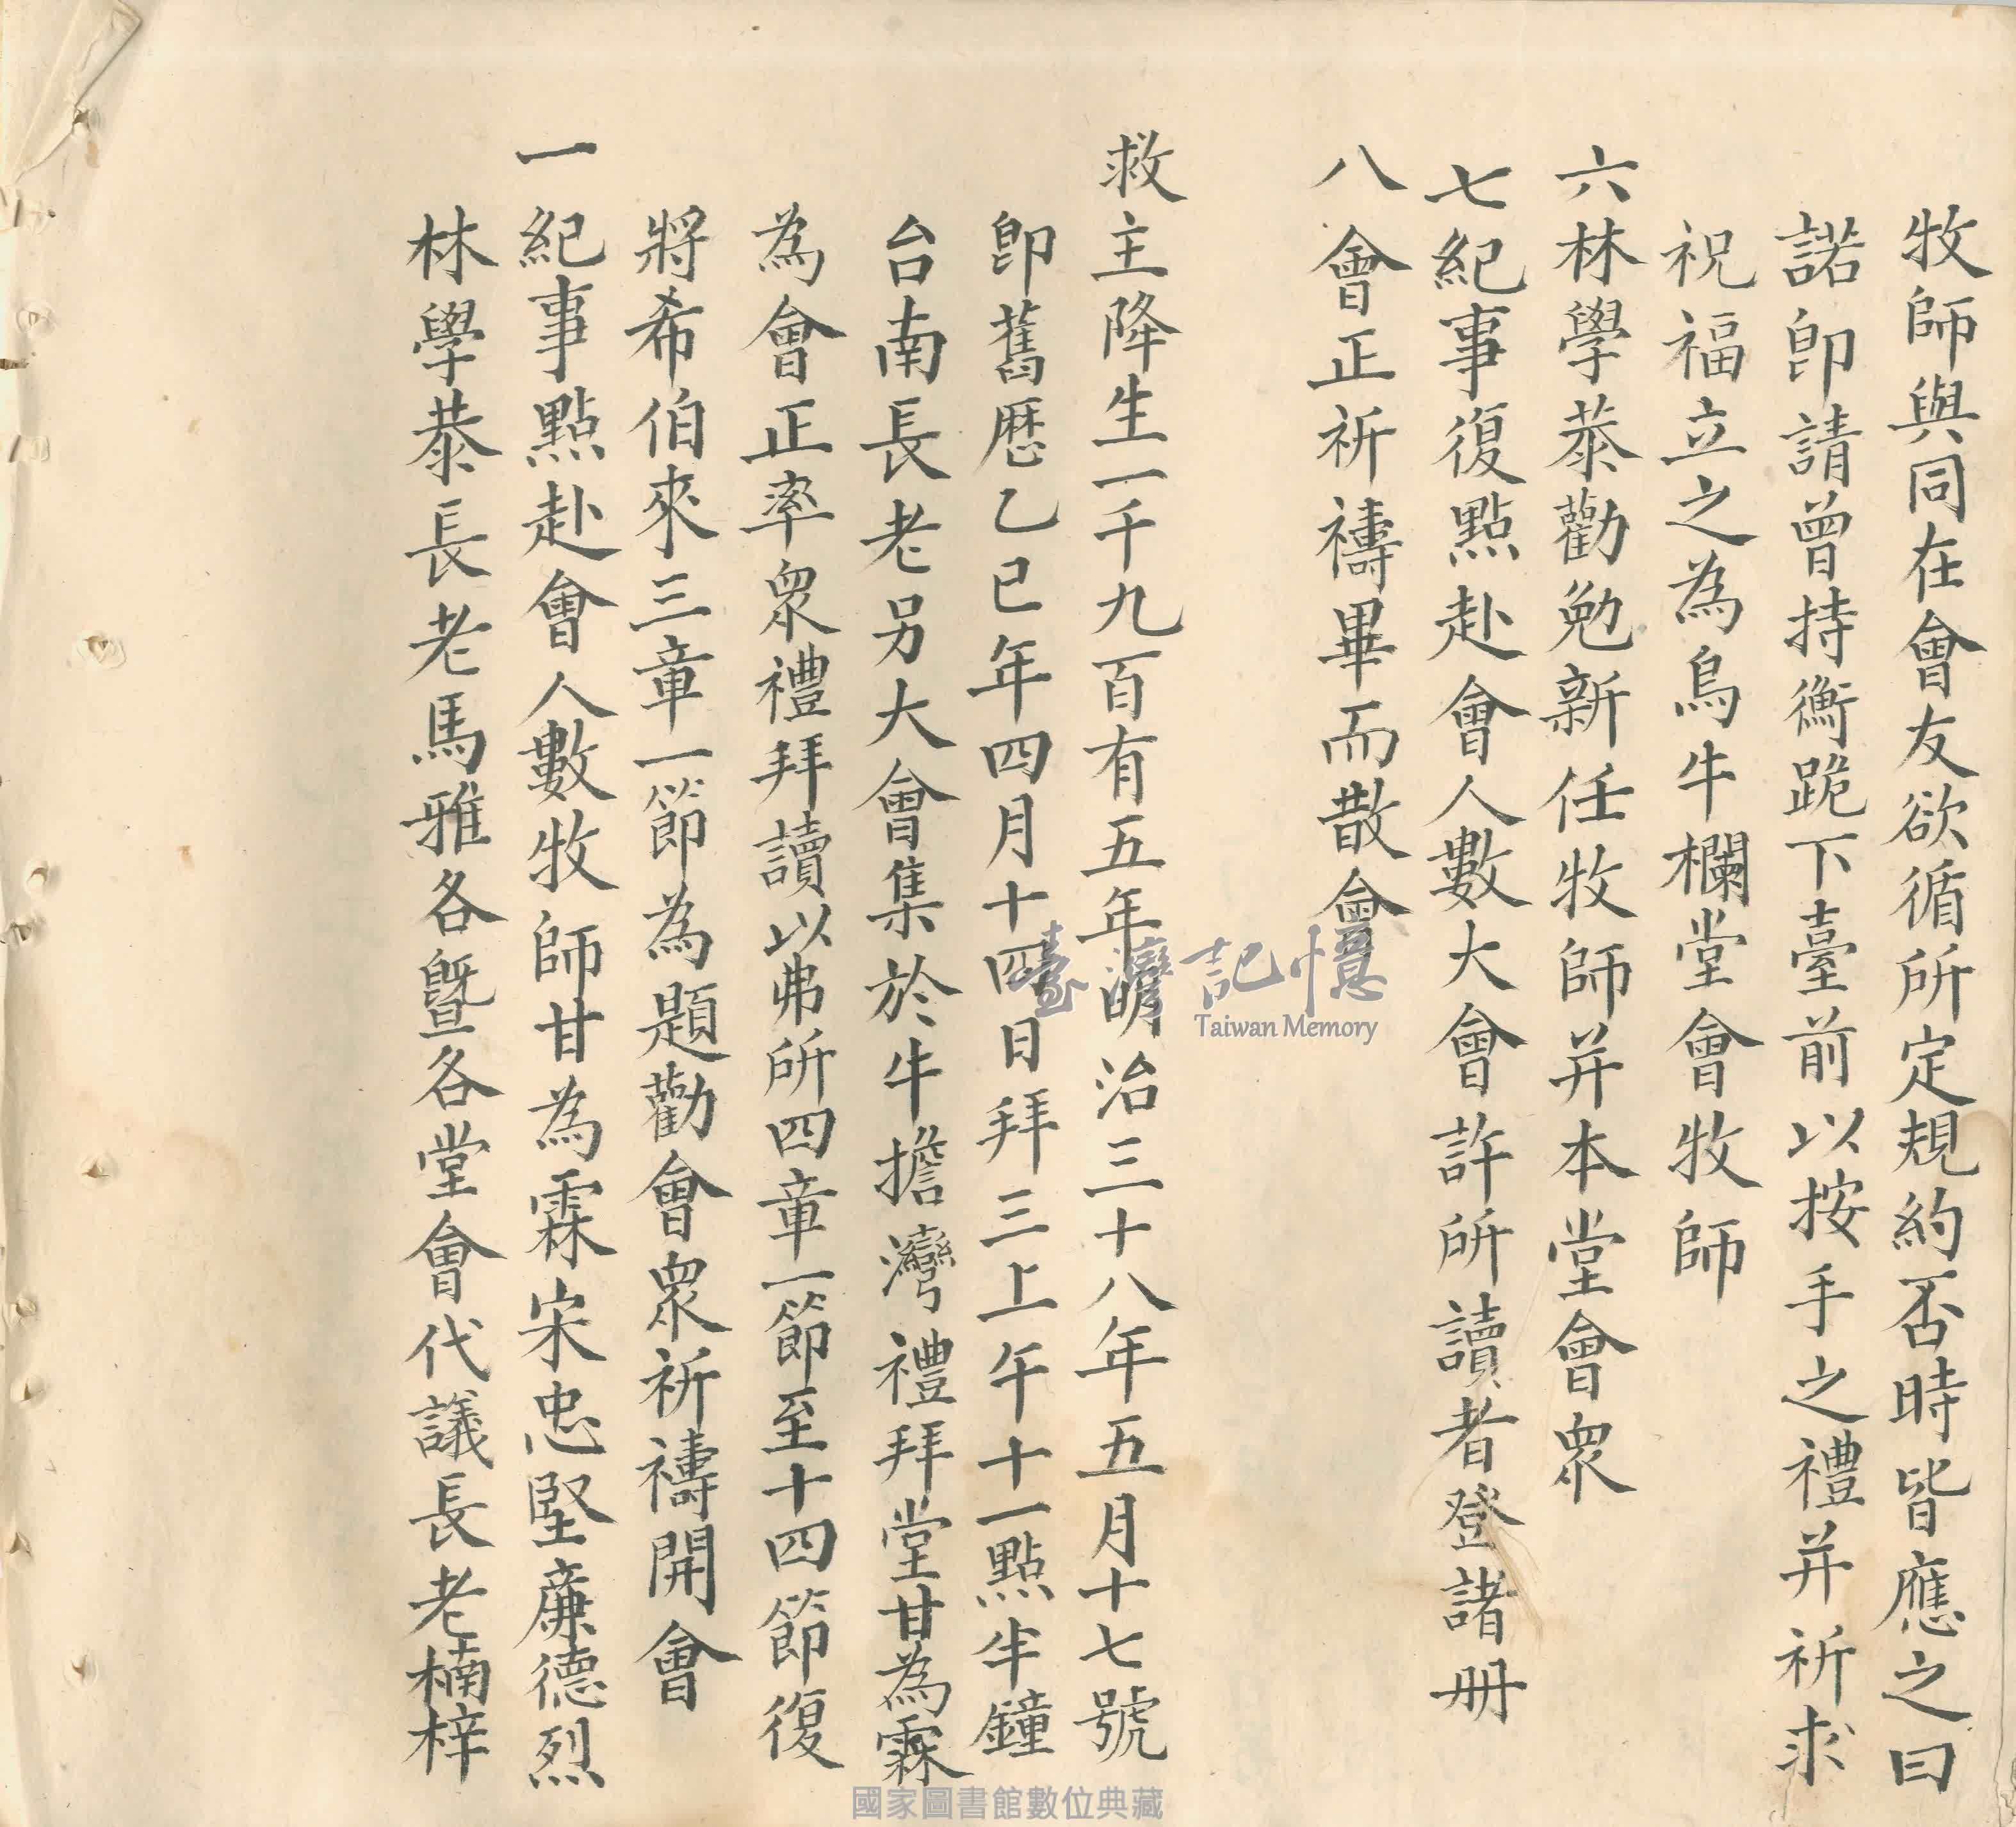 牧師與同在會友欲循所定規約否時皆應之曰
諾即請曾持衡跪下臺前以按手之禮并祈求
祝福立之為烏牛欄堂會牧師
六林學恭勸勉新任牧師并本堂會衆
七紀事復點赴會人數大會許所讀者登諸册
八會正祈禱畢而散會
救主降生一千九百有五年明治三十八年五月十七號
即舊歷乙巳年四月十四日拜三上午十一點半鐘
台南長老另大會集於牛擔灣禮拜堂甘為霖
為會正率衆禮拜讀以弗所四章一節至十四節復
將希伯來三章一節為題勸會衆祈禱開會
一紀事點赴會人數牧師甘為霖宋忠堅廉德烈
林學恭長老馬雅各暨各堂會代議長老楠梓
臺灣記憶
Taiwan Memory
國家圖書館數位典藏